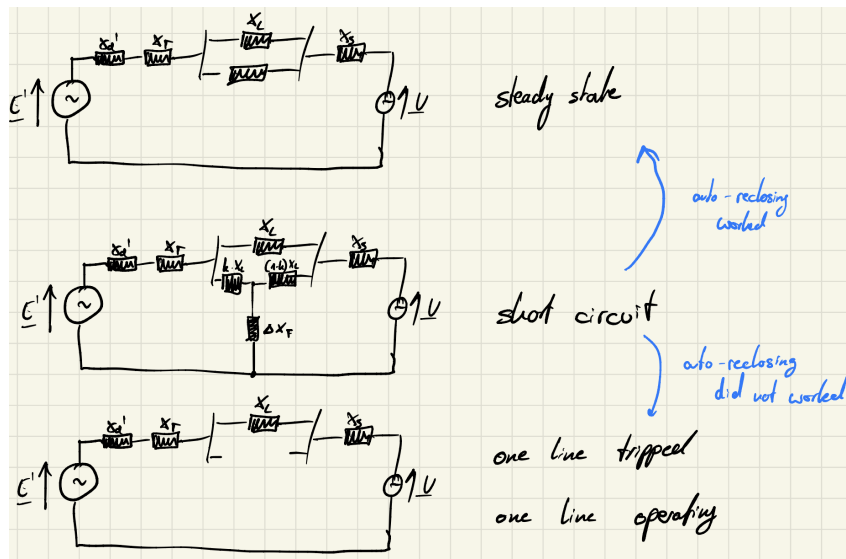 X_L
X_d' X_T X_S
E' ~ ~ U steady state
auto-reclosing
worked
X_L
X_d' X_T X_S
k·X_L (1-k)X_L
E' ~ ~ U short circuit
ΔX_F
auto-reclosing
did not worked
X_L
X_d' X_T X_S
one line tripped
E' ~ ~ U
one line operating